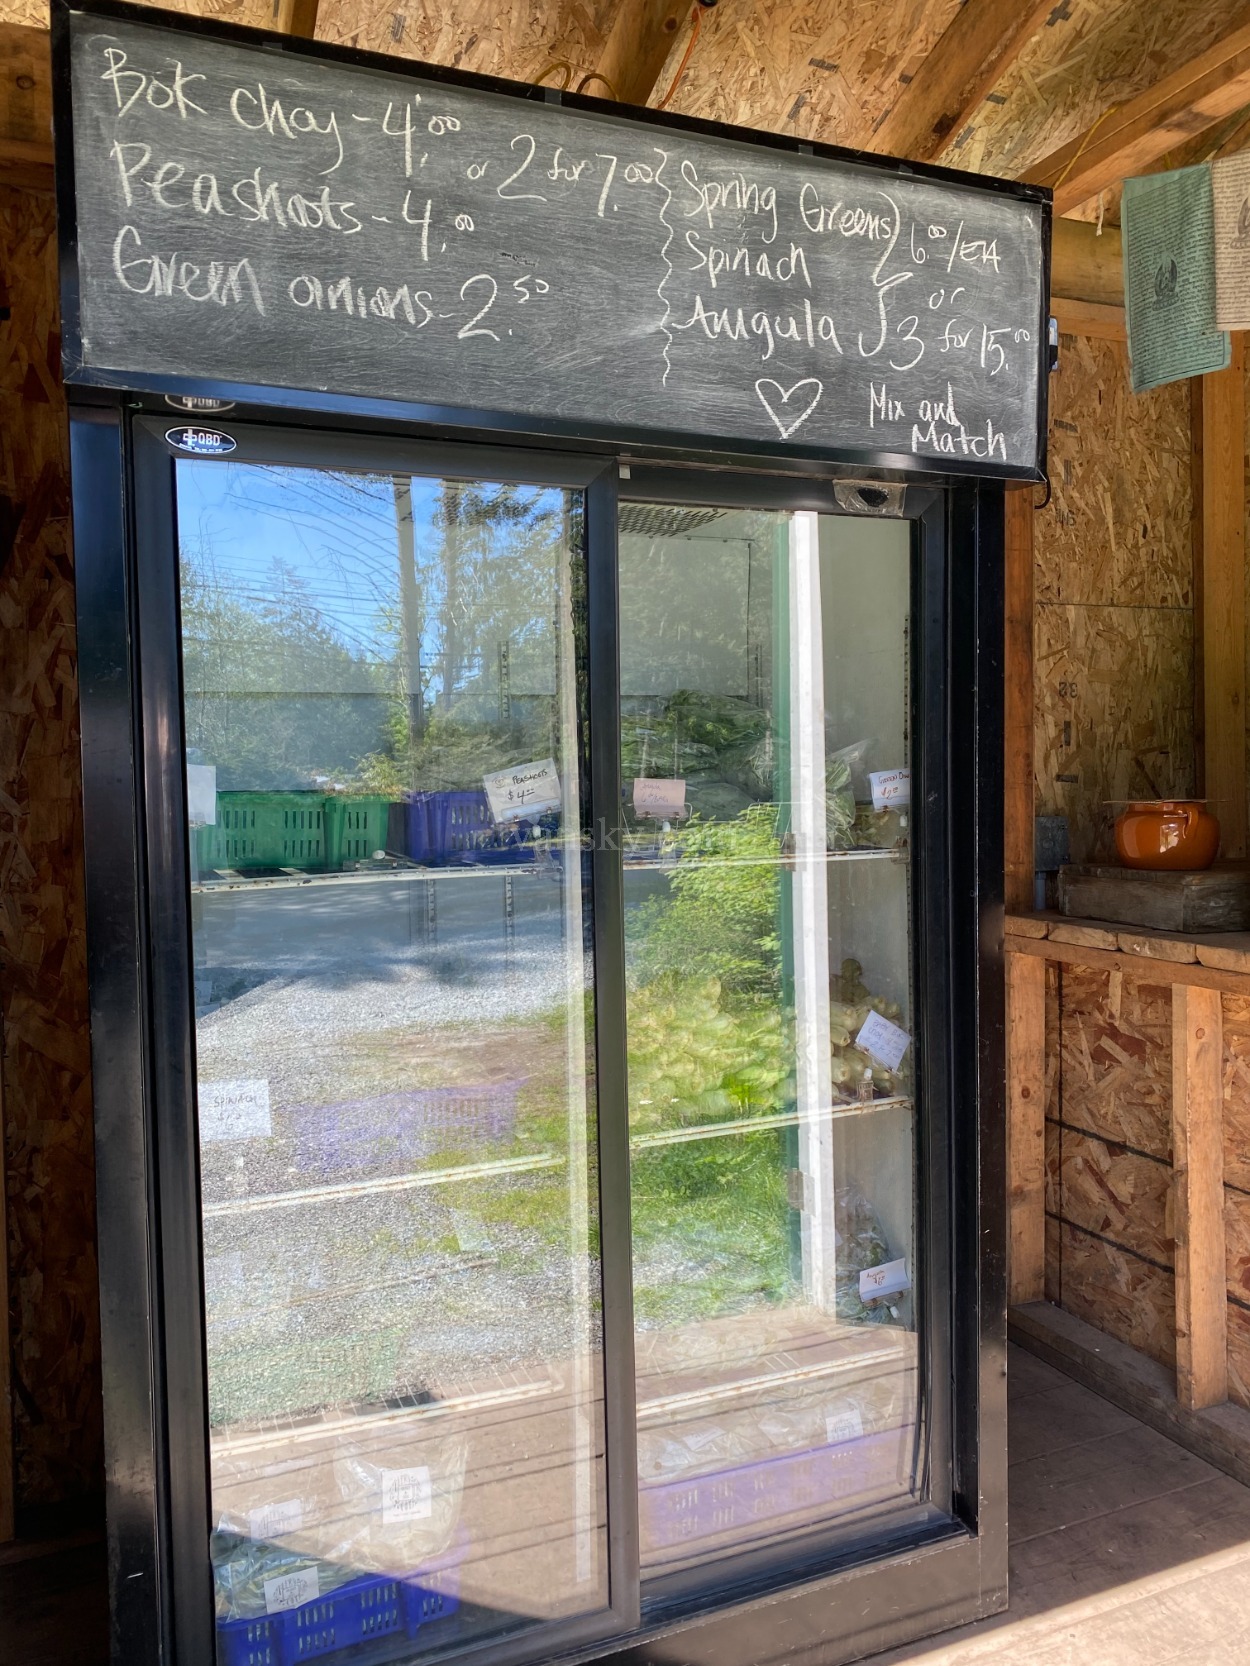 Bok choy - 4.00 or 2 for 7.00
Peashoots - 4.00
Green onions - 2.50
Spring Greens
Spinach
Arugula
6.00/EA
or
3 for 15.00
Mix and
Match
QBD
PEASHOOTS
$4.00
SPINACH